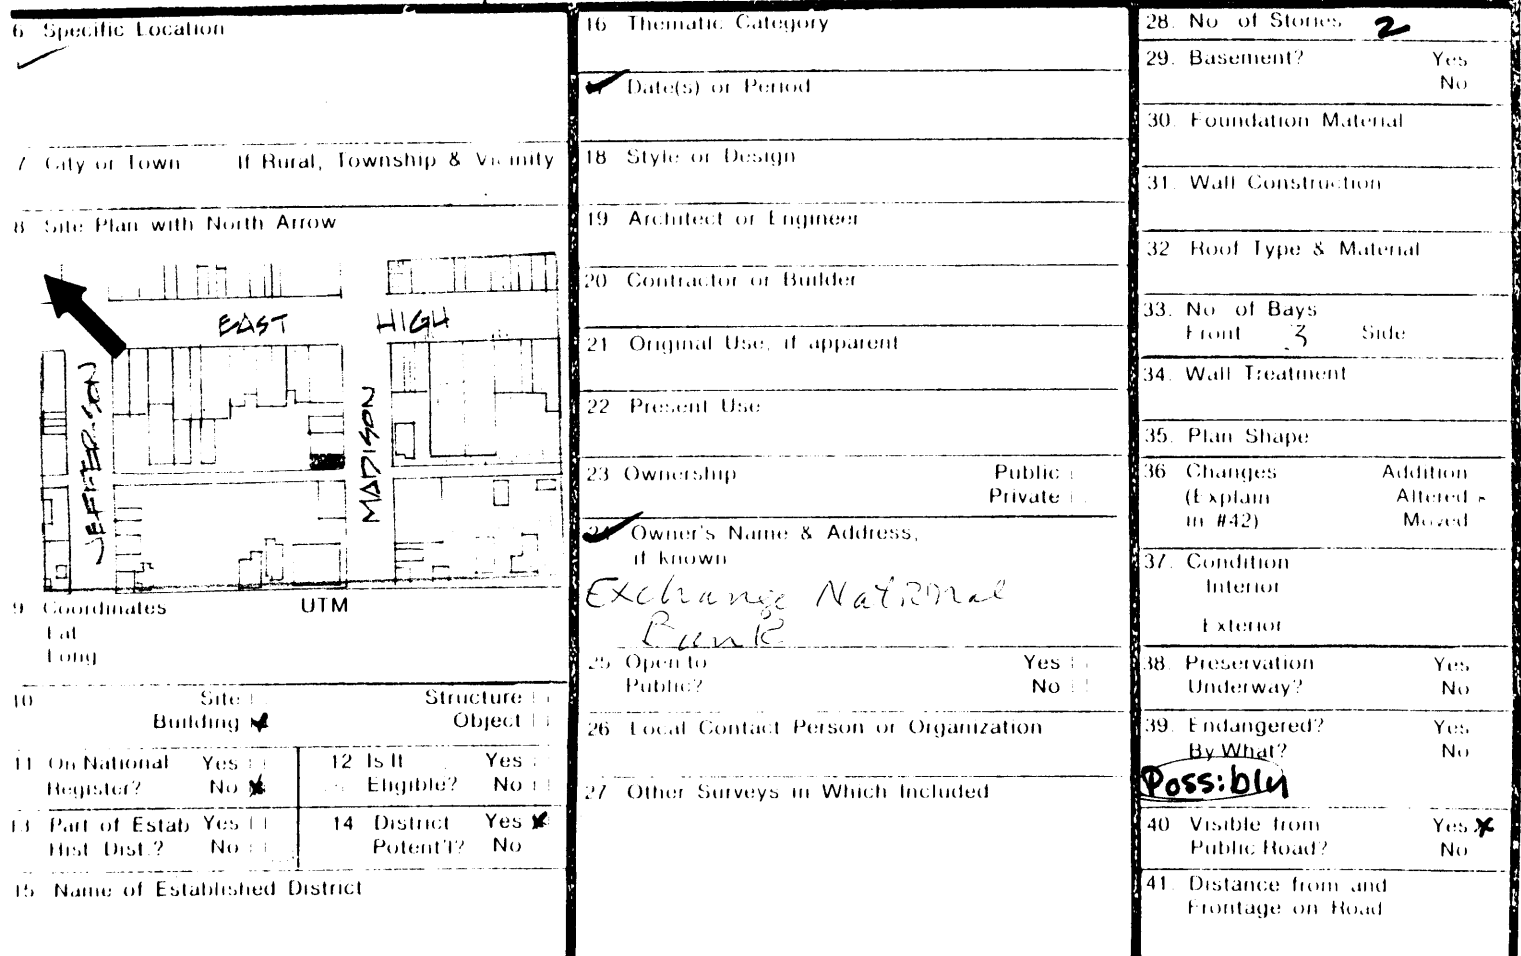 6 Specific Location
7 City or Town If Rural, Township & Vicinity
8 Site Plan with North Arrow
EAST HIGH
JEFFERSON
MADISON
9 Coordinates UTM
Lat
Long
10 Site Structure
Building Object
11 On National Yes
Register? No
12 Is It Yes
Eligible? No
13 Part of Estab Yes
Hist. Dist.? No
14 District Yes
Potent'l? No
15 Name of Established District
16 Thematic Category
17 Date(s) or Period
18 Style or Design
19 Architect or Engineer
20 Contractor or Builder
21 Original Use, if apparent
22 Present Use
23 Ownership Public
Private
24 Owner's Name & Address,
if known
Exchange National
Bank
25 Open to Yes
Public? No
26 Local Contact Person or Organization
27 Other Surveys in Which Included
28. No of Stories 2
29. Basement? Yes
No
30. Foundation Material
31. Wall Construction
32 Roof Type & Material
33. No of Bays
Front 3 Side
34. Wall Treatment
35. Plan Shape
36 Changes Addition
(Explain Altered x
in #42) Moved
37. Condition
Interior
Exterior
38. Preservation Yes
Underway? No
39. Endangered? Yes
By What? No
Possibly
40 Visible from Yes x
Public Road? No
41. Distance from and
Frontage on Road